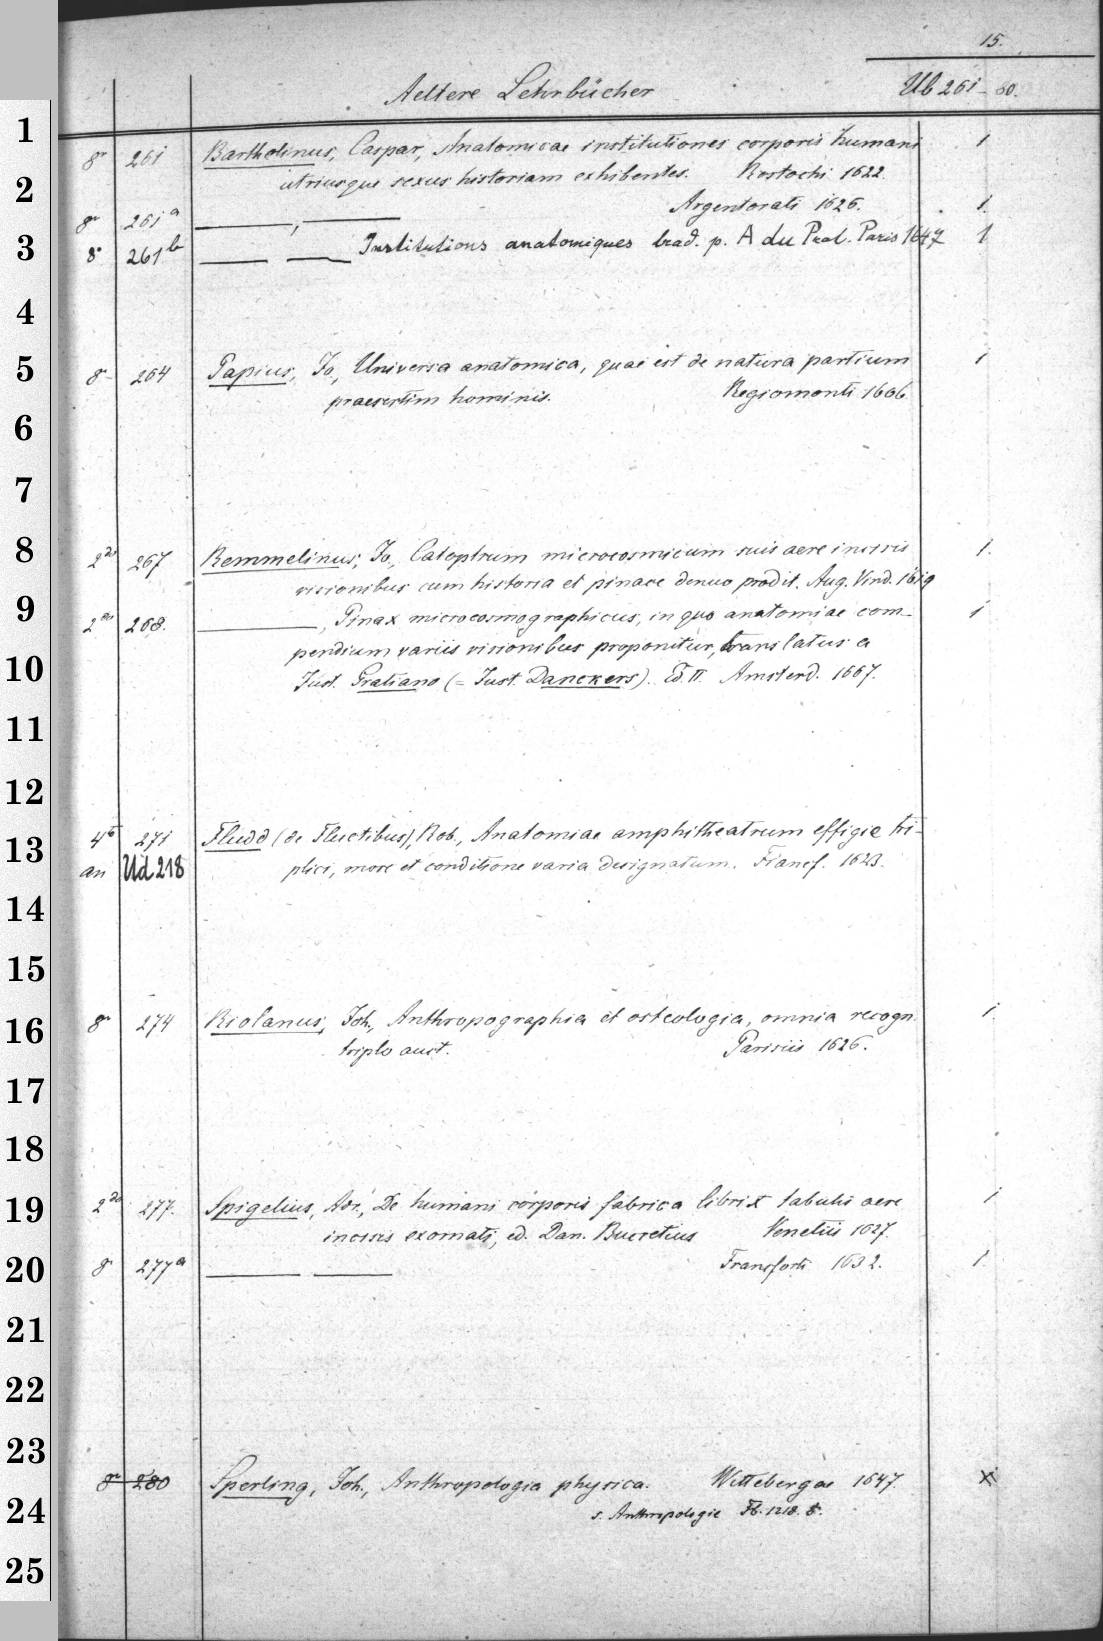 15.
Aeltere Lehrbücher Ub 261-80.
1
8° 261 Bartholinus, Caspar, Anatomicae institutiones corporis humani 1
2
utriusque sexus historiam exhibentes. Rostochi 1622.
8° 261a ———, ——— Argentorati 1626. 1.
3
8° 261b —— —— Institutions anatomiques trad. p. A du Prat. Paris 1647 1
4
5
8° 264 Papius, Jo., Universa anatomica, quae est de natura partium 1
praesertim hominis. Regiomonti 1606.
6
7
8
2do 267 Remmelinus, Jo., Catoptrum microcosmicum suis aere incisis 1.
visionibus cum historia et pinace denuo prodit. Aug. Vind. 1619
9
2do 268. ———, Pinax microcosmographicus, in quo anatomiae com- 1
pendium variis visionibus proponitur, translatus a
10
Just. Gratiano (= Just. Danckers). Ed. II. Amsterd. 1667.
11
12
4to 271 Fludd (de Fluctibus), Rob., Anatomiae amphitheatrum effigie tri-
13
an Ud 218 plici, more et conditione varia designatum. Francf. 1623.
14
15
16
8° 274 Riolanus, Joh., Anthropographia et osteologia, omnia recogn. 1.
triplo auct. Parisiis 1626.
17
18
19
2do 277. Spigelius, Adr., De humani corporis fabrica libri X tabulis aere 1
incisis exornati, ed. Dan. Bucretius Venetiis 1627.
20
8° 277a ——— ——— Francforti 1632. 1.
21
22
23
8° 280 Sperling, Joh., Anthropologia physica. Wittebergae 1647. x
24
s. Anthropologie Fb. 1218. 8°.
25